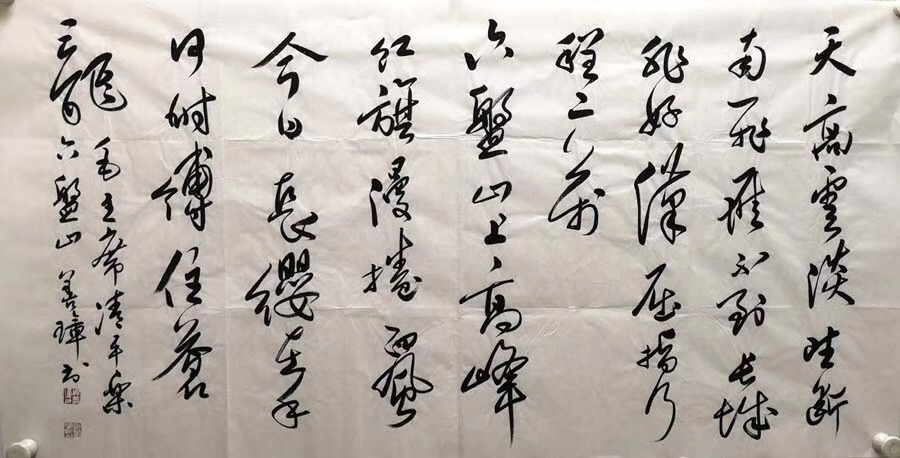 天高雲淡望斷
南飛雁不到長城
非好漢屈指行
程二萬
六盤山上高峰
紅旗漫捲西風
今日長纓在手
何時縛住蒼
龍 毛主席清平樂
六盤山 善璋书